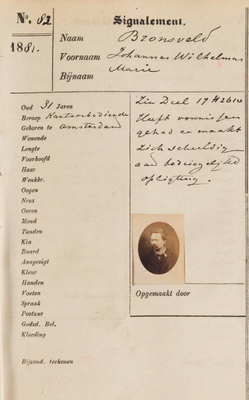 No. 82
1881.
Signalement.
Naam Bronsveld
Voornaam Johannes Wilhelmus
Marie
Bijnaam
Oud 31 Jaren
Beroep Kantoorbediende
Geboren te Amsterdam
Wonende
Lengte
Voorhoofd
Haar
Wenkbr.
Oogen
Neus
Ooren
Mond
Tanden
Kin
Baard
Aangezigt
Kleur
Handen
Voeten
Spraak
Postuur
Godsd. Bel.
Kleeding
Bijzond. teekenen
Zie Deel 17 H2610
Heeft vonnissen
gehad en maakt
zich schuldig
aan bedriegelijke
opligting.
Opgemaakt door